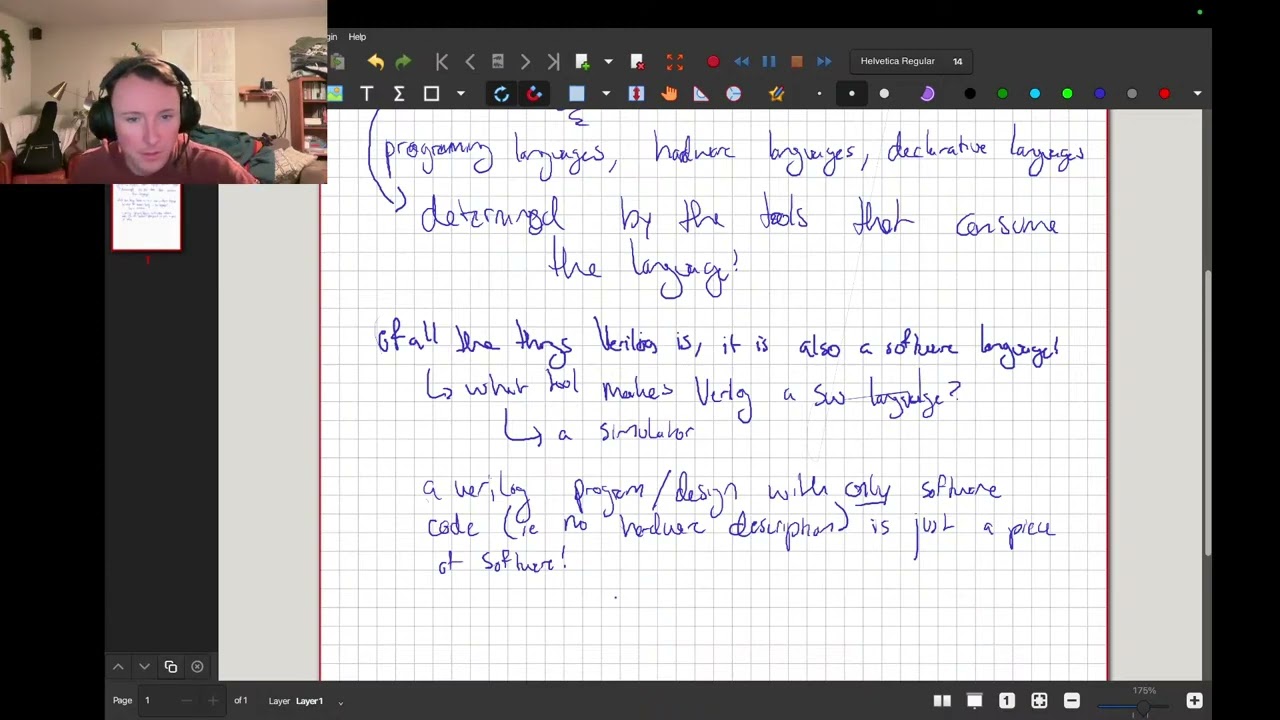 gin Help
Helvetica Regular 14
programing languages, hardware languages, declarative languages
determined by the tools that consume
the language!
of all the things Verilog is, it is also a software language!
↳ what tool makes Verilog a SW language?
↳ a simulator
a verilog program/design with only software
code (ie no hardware description) is just a piece
of software!
1
Page 1 of 1 Layer Layer 1 1 175%